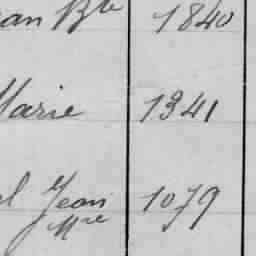 an Bte 1840
Marie 1341
l Jean 1079
Mre